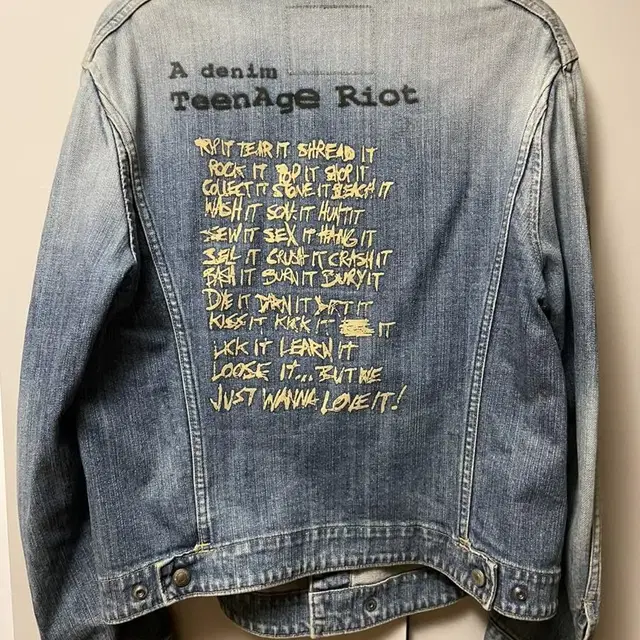 A denim
TeenAge Riot
RIP IT TEAR IT SHREAD IT
ROCK IT POP IT SHOP IT
COLLECT IT STONE IT BLEACH IT
WASH IT SOAK IT HUNT IT
SEW IT SEX IT HANG IT
SELL IT CRUSH IT CRASH IT
BASH IT BURN IT BURY IT
DYE IT DARN IT IT
KISS IT KICK IT IT
LICK IT LEARN IT
LOOSE IT... BUT WE
JUST WANNA LOVE IT!